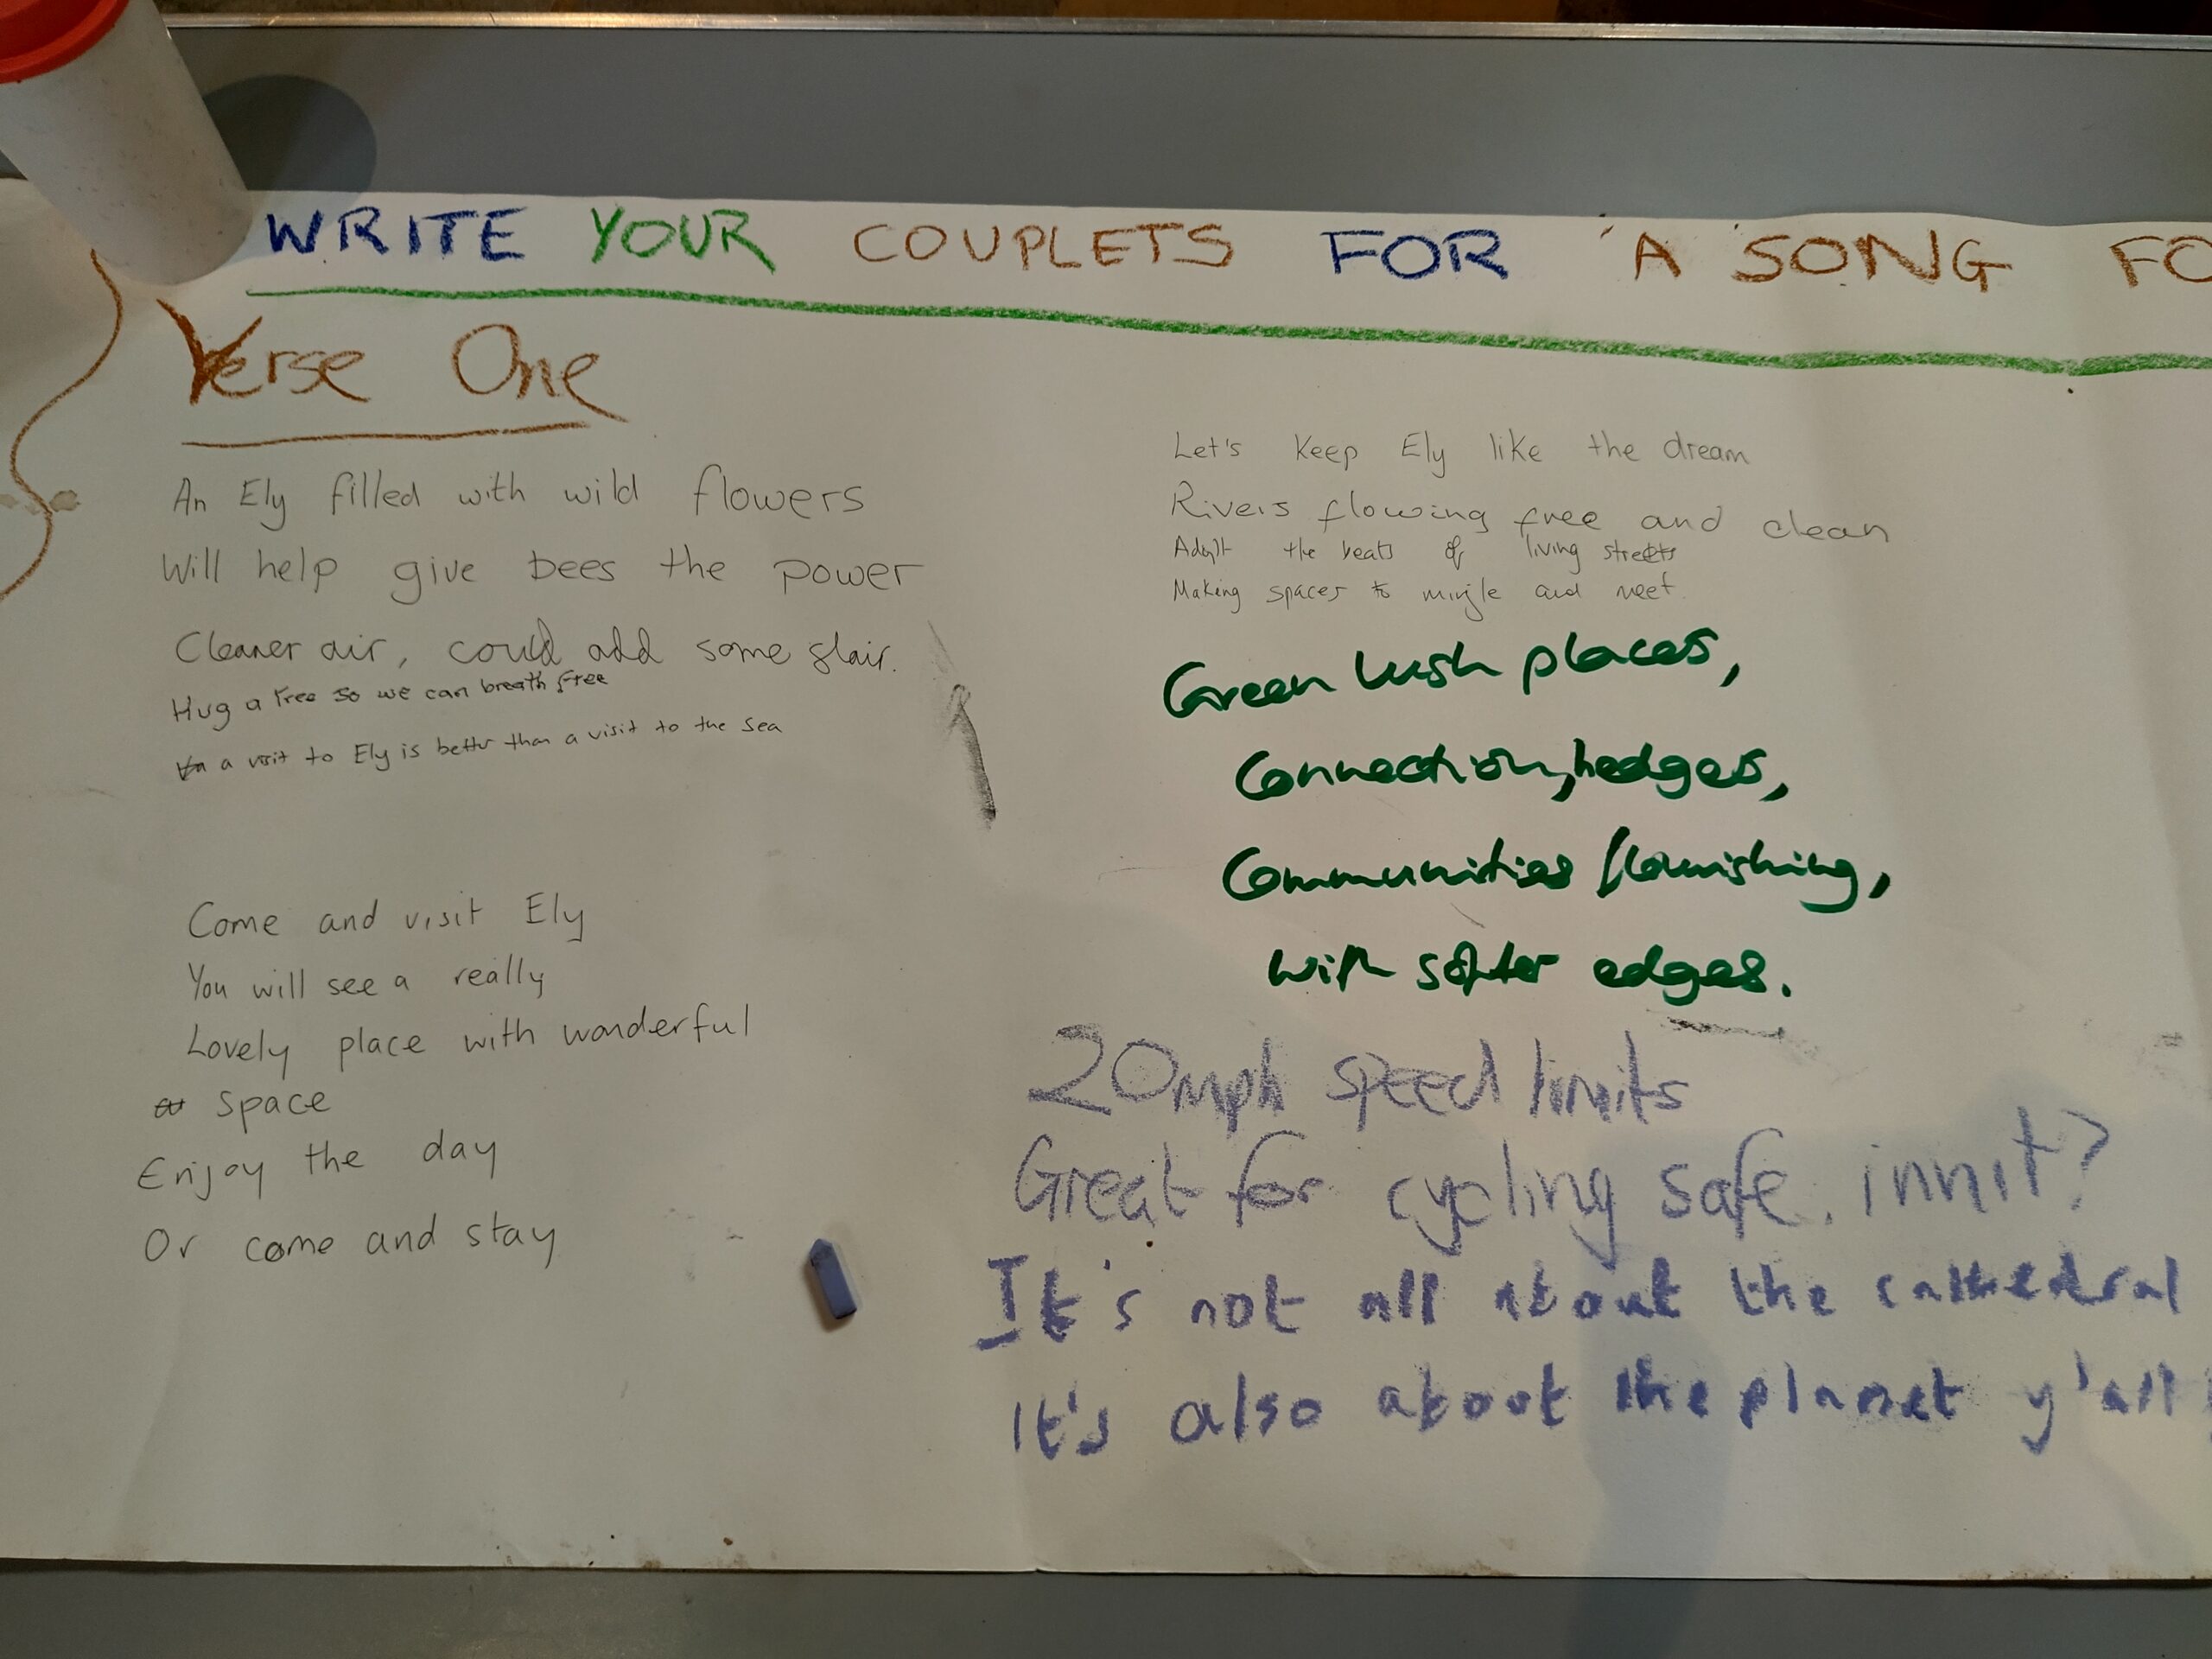 WRITE YOUR COUPLETS FOR 'A SONG FO
Verse One
An Ely filled with wild flowers
Will help give bees the power
Cleaner air, could add some flair.
Hug a tree so we can breath free
a visit to Ely is better than a visit to the sea
Come and visit Ely
You will see a really
Lovely place with wonderful
space
Enjoy the day
Or come and stay
Let's keep Ely like the dream
Rivers flowing free and clean
Adopt the beats of living streets
Making spaces to mingle and meet.
Green lush places,
Connection, hedges,
Communities flourishing,
with softer edges.
20mph speed limits
Great for cycling safe. innit?
It's not all about the cathedral
It's also about the planet y'all